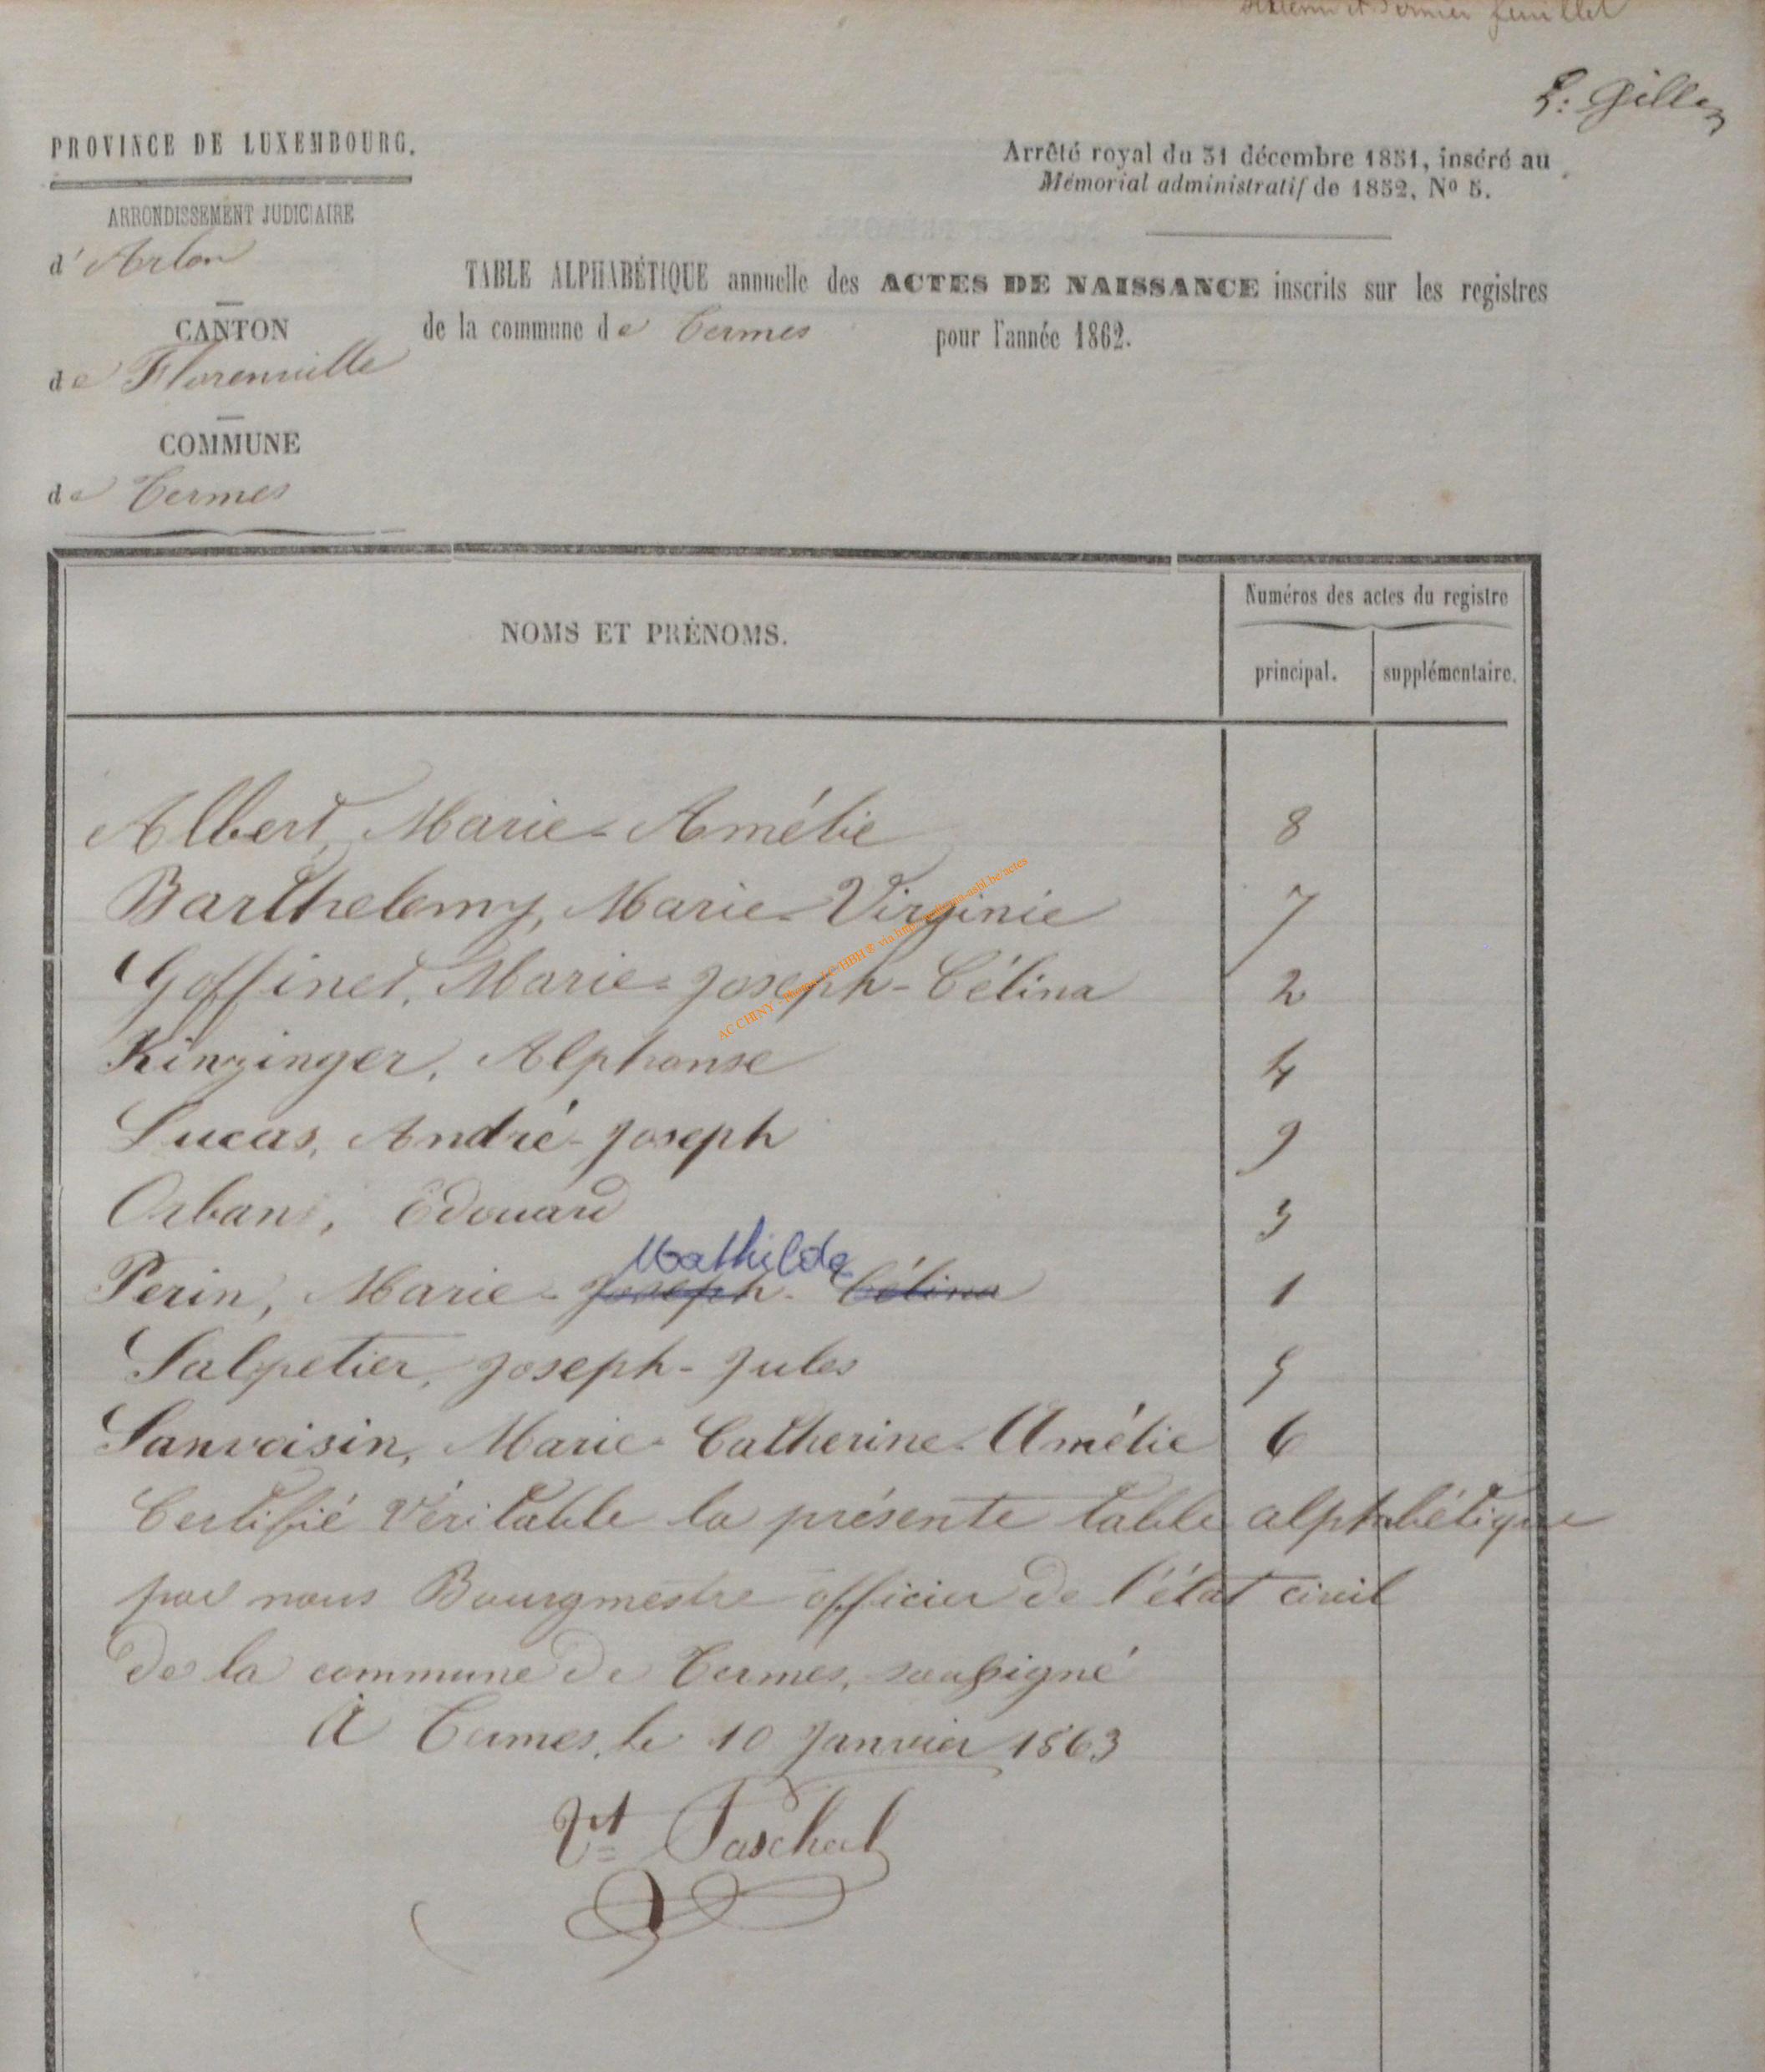 et dernier feuillet
Gillen
PROVINCE DE LUXEMBOURG.
Arrêté royal du 31 décembre 1851, inséré au
Mémorial administratif de 1852, No 5.
ARRONDISSEMENT JUDICIAIRE
d'Arlon
TABLE ALPHABÉTIQUE annuelle des ACTES DE NAISSANCE inscrits sur les registres
de la commune de Termes pour l'année 1862.
CANTON
de Florenville
COMMUNE
de Termes
NOMS ET PRÉNOMS.
Numéros des actes du registre
principal. supplémentaire.
Albert, Marie-Amélie 8
Barthelemy, Marie-Virginie 7
Goffinet, Marie-Joseph-Célina 2
Kinzinger, Alphonse 4
Lucas, André-Joseph 9
Orban, Edouard 3
Mathilde
Perin, Marie-Joseph-Célina 1
Salpetier, Joseph-Jules 5
Sanvoisin, Marie-Catherine-Amélie 6
Certifié Véritable la présente table alphabétique
par nous Bourgmestre officier de l'état civil
de la commune de Termes, soussigné
A Termes, le 10 Janvier 1863
Paschal
AC CHINY